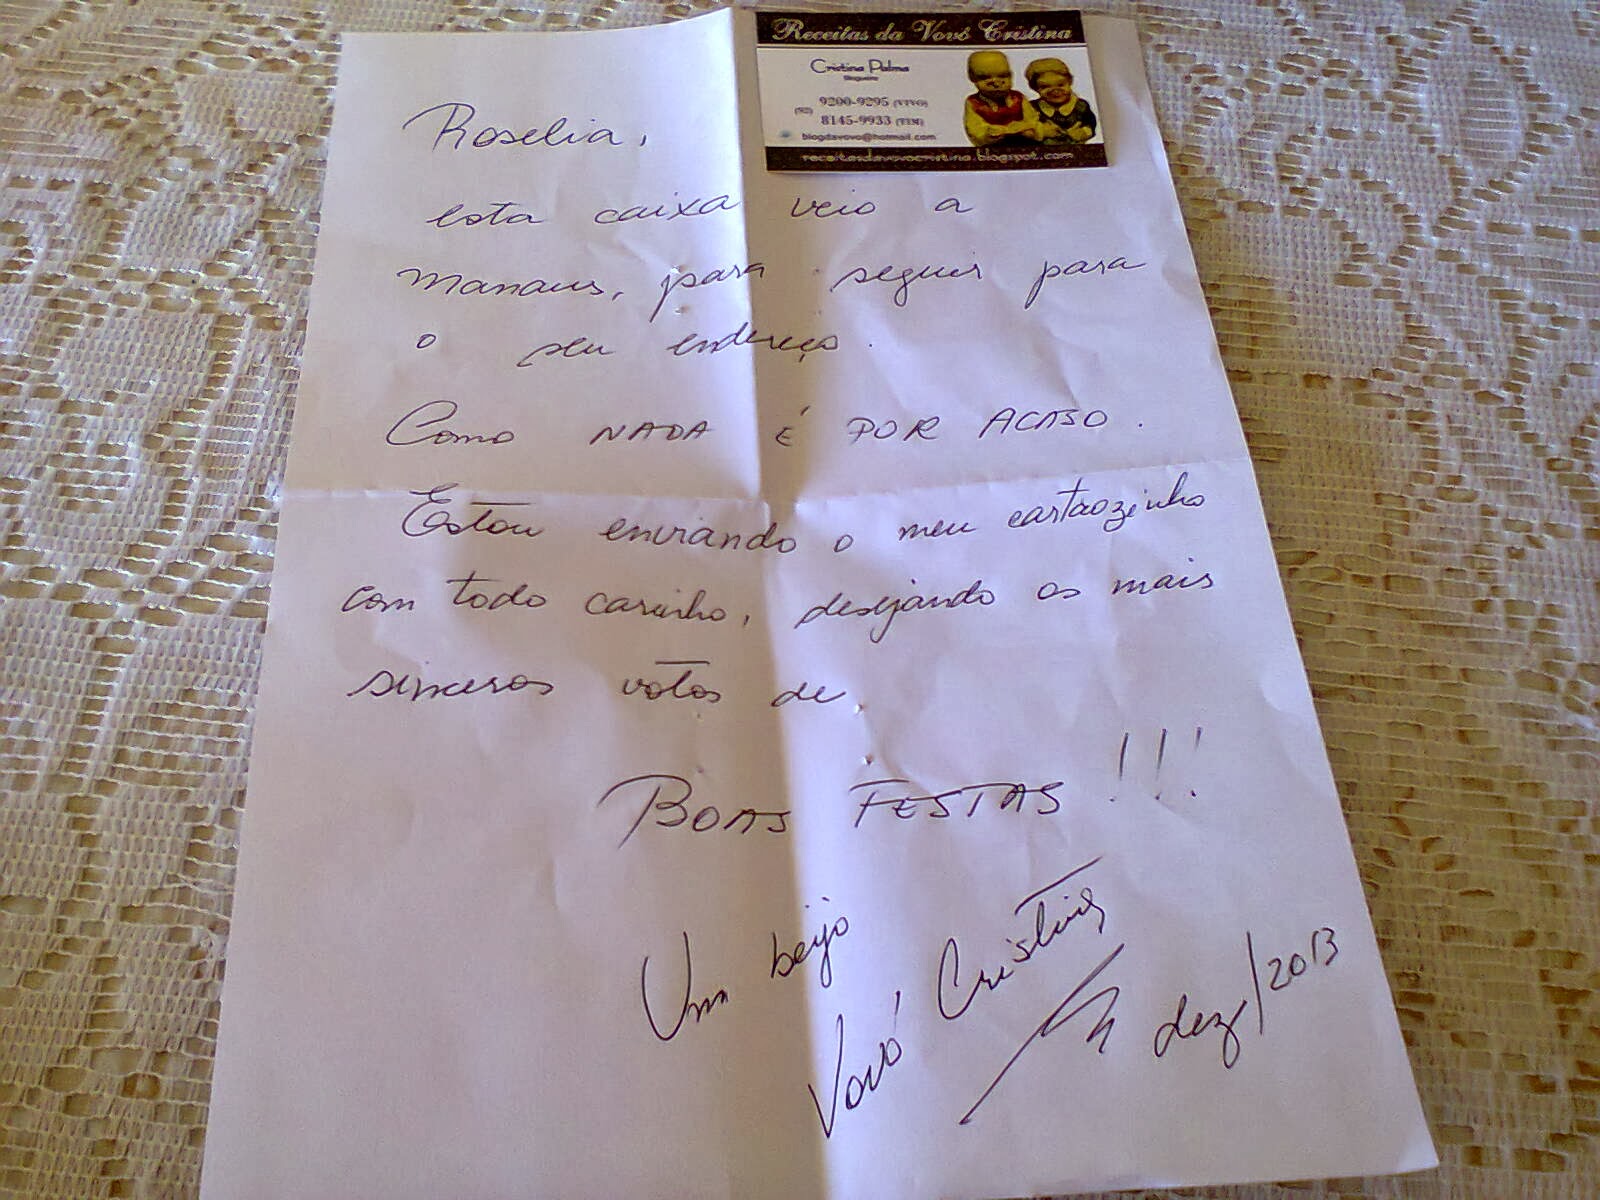 Receitas da Vovó Cristina
Cristina Palma
Blogueira
(92) 9200-9295 (VIVO)
8145-9933 (TIM)
blogdavovo@hotmail.com
receitasdavovocristina.blogspot.com
Roselia,
esta caixa veio a
Manaus, para seguir para
o seu endereço.
Como NADA É POR ACASO.
Estou enviando o meu cartãozinho
com todo carinho, desejando os mais
sinceros votos de
BOAS FESTAS!!!
Um beijo
Vovó Cristina
dez/2013